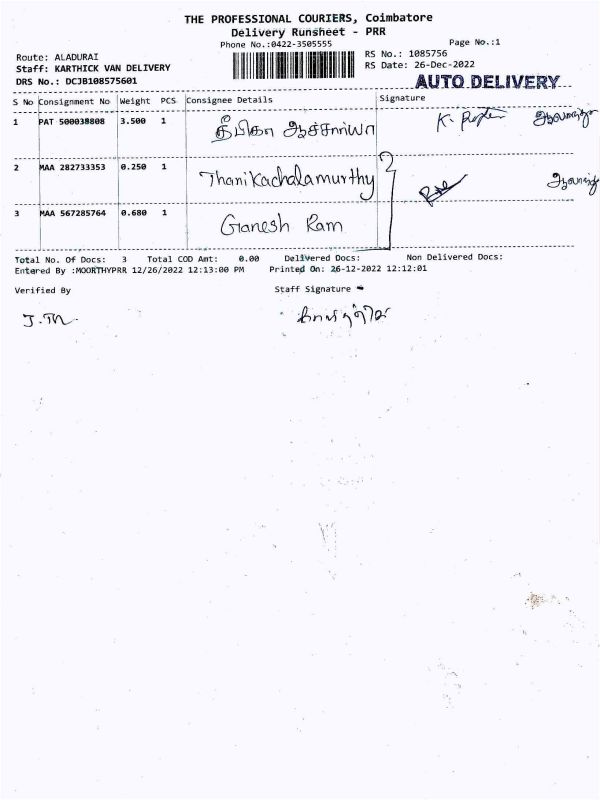 THE PROFESSIONAL COURIERS, Coimbatore
Delivery Runsheet - PRR
Phone No.:0422-3505555
Page No.:1
Route: ALADURAI
RS No.: 1085756
Staff: KARTHICK VAN DELIVERY
RS Date: 26-Dec-2022
DRS No.: DCJB108575601
AUTO DELIVERY
S No Consignment No Weight PCS Consignee Details Signature
1 PAT 500038808 3.500 1 தீபிகா ஆச்சார்யா
2 MAA 282733353 0.250 1 Thanikachalamurthy
3 MAA 567285764 0.680 1 Ganesh Ram
Total No. Of Docs: 3 Total COD Amt: 0.00 Delivered Docs: Non Delivered Docs:
Entered By :MOORTHYPRR 12/26/2022 12:13:00 PM Printed On: 26-12-2022 12:12:01
Verified By Staff Signature